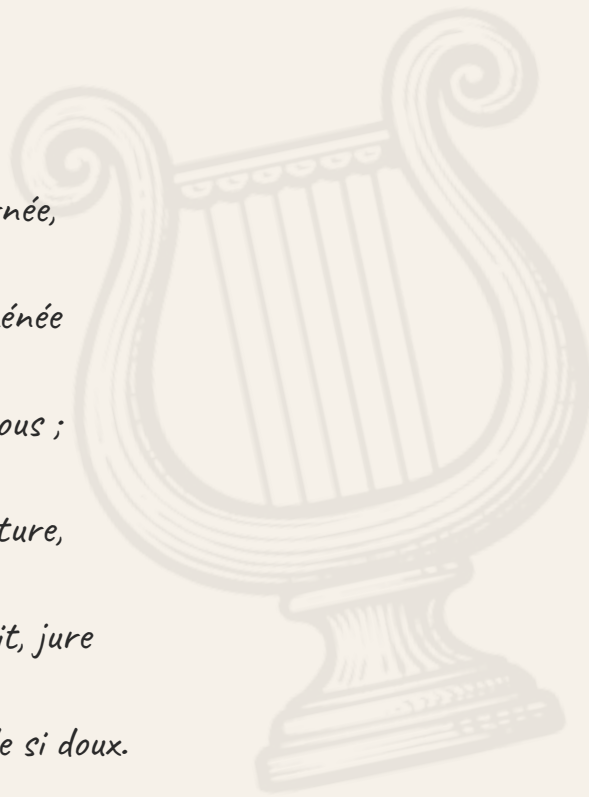 née,
énée
ous ;
ture,
it, jure
e si doux.